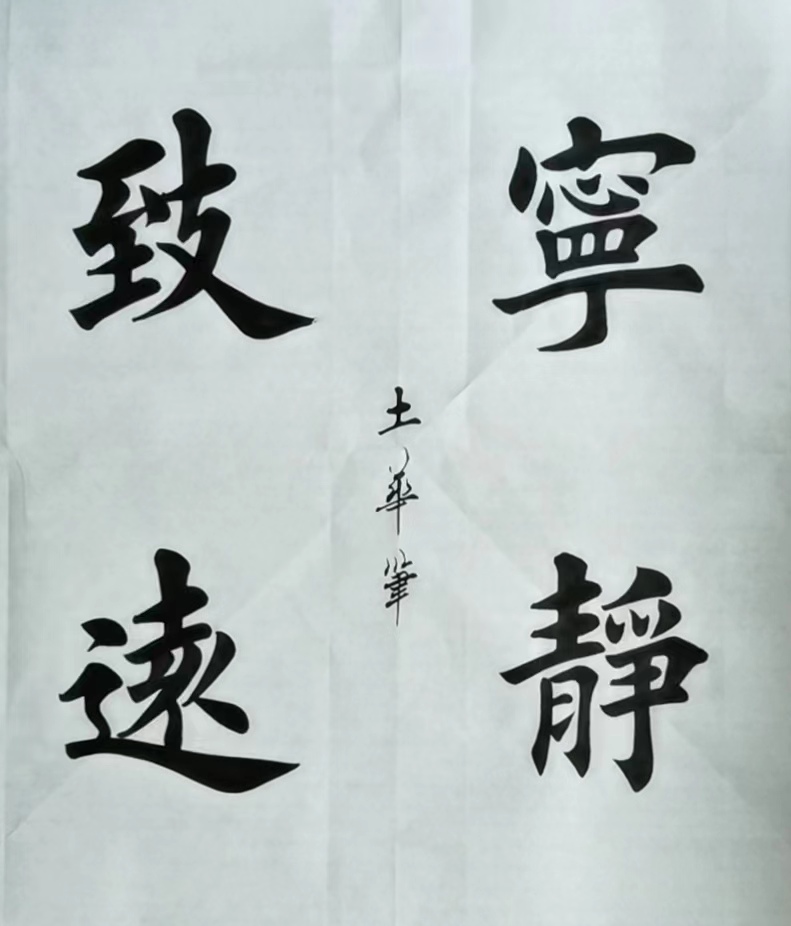 寧靜
致遠
土華筆